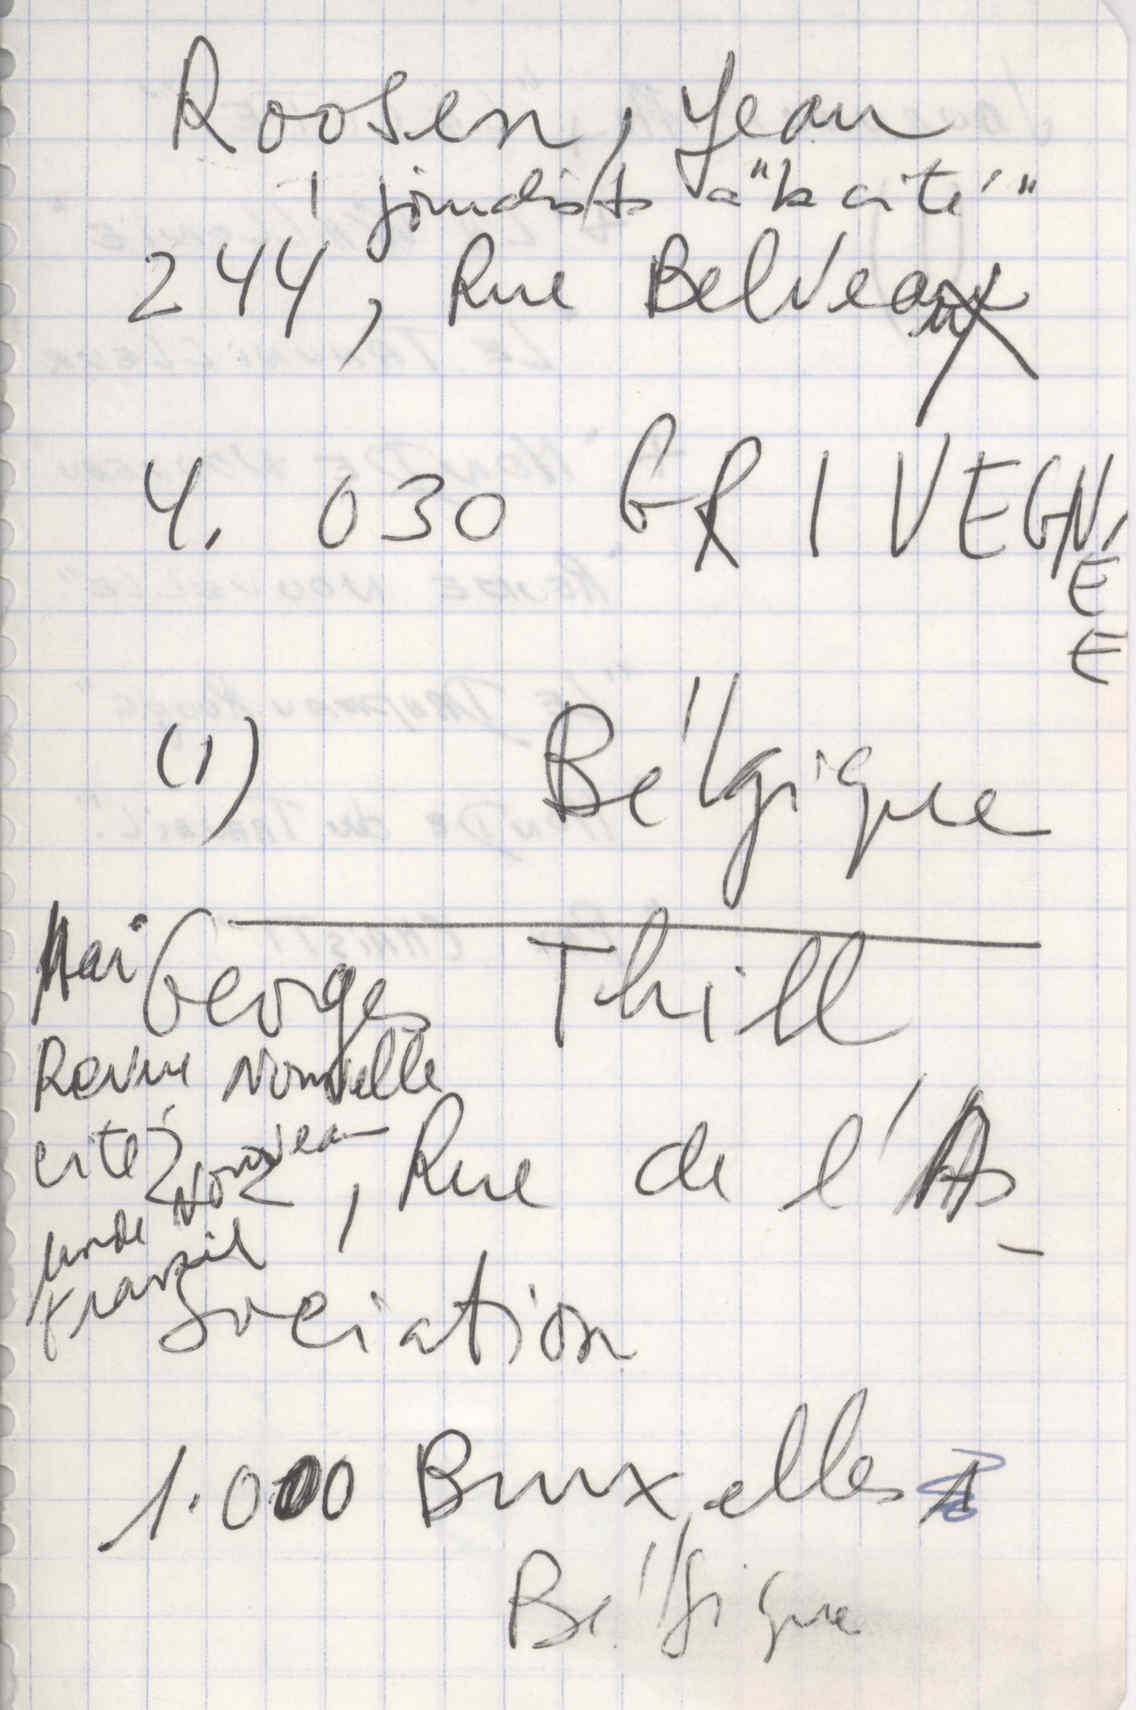 Roosen, Jean
1 journaliste à "la cité"
244, Rue Belveaux
4. 030 GRIVEGNÉE
(1) Bélgique
Mai Georges Thill
Revue Nouvelle
cité Nouveau
22, Rue de l'As-
monde
travail
sociation
1.000 Bruxelles
Bélgique